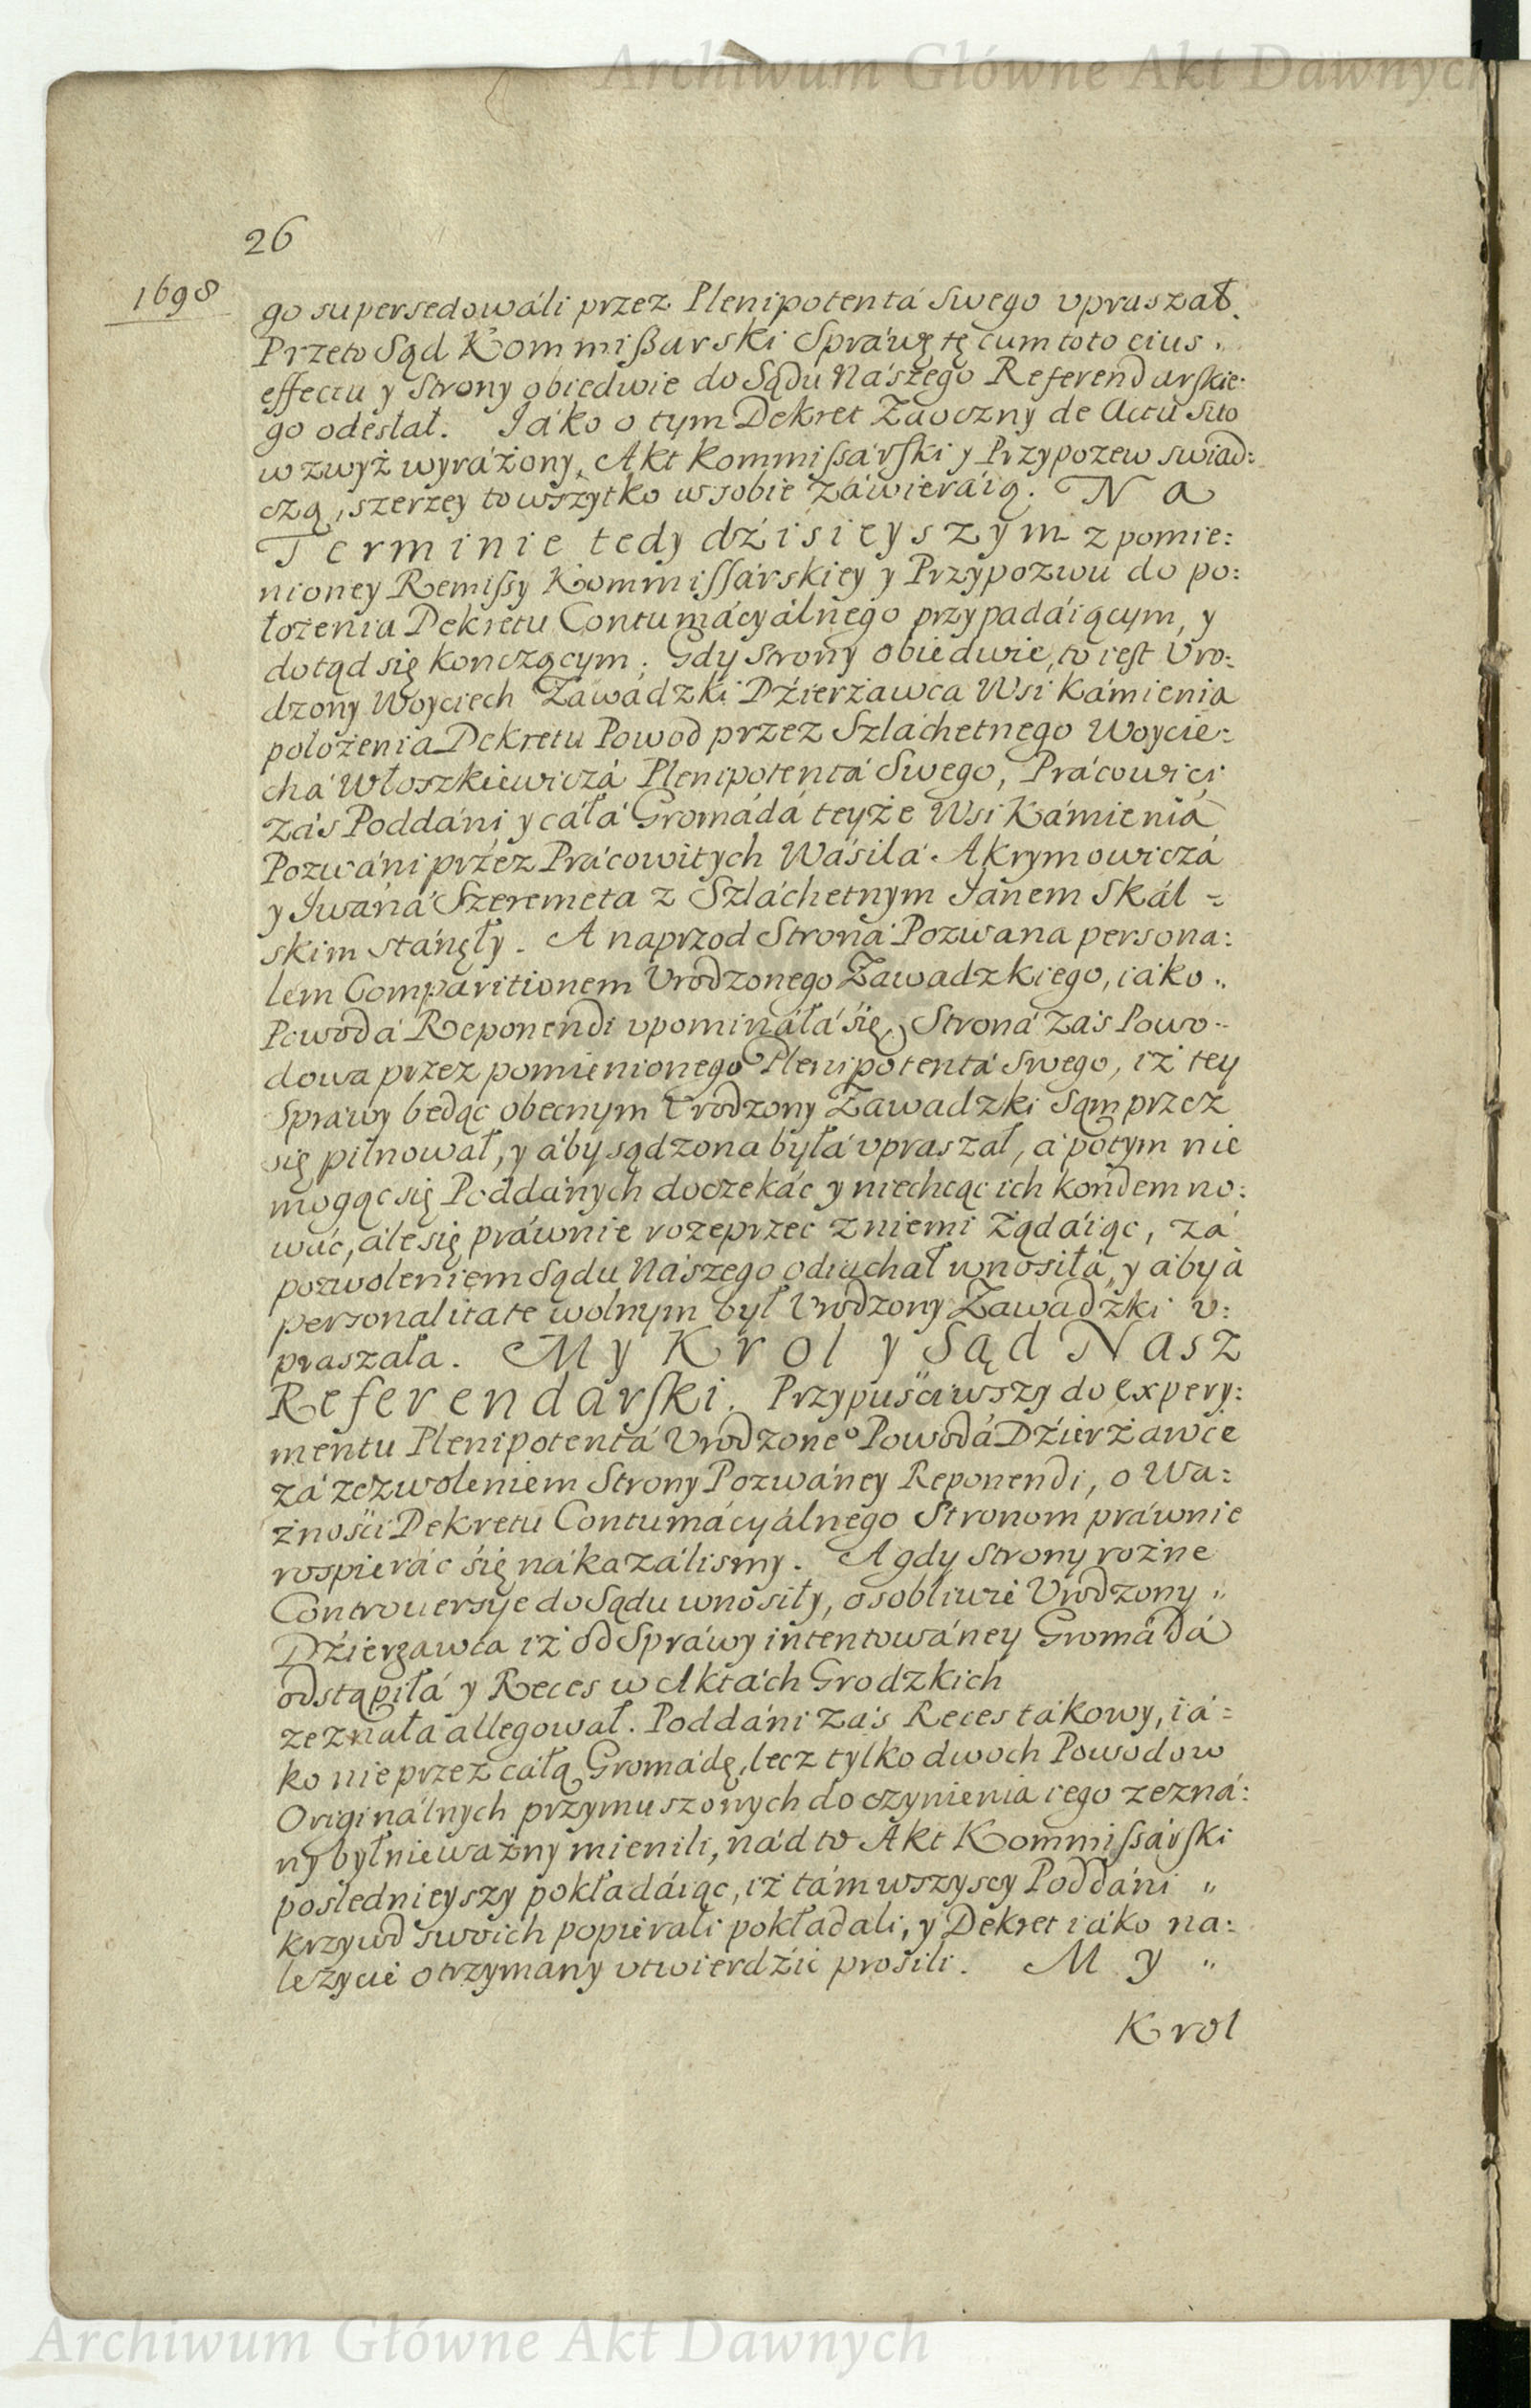 Archiwum Główne Akt Dawnych
26
1698
go supersedowáli przez Plenipotentá Swego vpraszał.
Przeto Sąd Kommißarski Spráwę tę cum toto eius
effectu y Strony obiedwie do Sądu Nászego Referendarskie:
go odesłał. Iáko o tym Dekret Zaoczny de Actu suo
wzwyż wyráżony, Akt Kommissárski y Przypozew swiad:
czą, szerzey to wszytko w sobie záwieráią. Na
Terminie tedy dźisieyszym z pomie:
nioney Remissy Kommissárskiey y Przypozwu do po:
łożenia Dekretu Contumácyálnego przypadáiącym, y
dotąd się konczącym. Gdy Strony obiedwie, to iest Vro:
dzony Woyciech Zawádzki Dźierżawca Wsi Kámienia
położenia Dekretu Powod przez Szláchetnego Woycie:
chá Włoszkiewiczá Plenipotentá Swego, Prácowici
zás Poddáni y cáłá Gromádá teyże Wsi Kámieniá
Pozwáni przez Prácowitych Wásilá Akrymowiczá
y Iwáná Szeremeta z Szláchetnym Iánem Skál =
skim stánęły. A naprzod Stroná Pozwana persona:
lem Comparitionem Vrodzonego Zawadzkiego, iáko
Powodá Reponendi vpomináłá się. Stroná zás Powo:
dowa przez pomienionego Plenipotentá swego, iż tey
Sprawy będąc obecnym Vrodzony Zawadzki sąm przez
się pilnował, y áby sądzona byłá vpraszał, á potym nie
mogąc się Poddánych doczekác y niechcąc ich kondemno:
wác, ále się práwnie rozeprzec z niemi żądáiąc, zá
pozwoleniem Sądu Nászego odiachał wnosiłá, y áby á
personalitate wolnym był Vrodzony Zawadzki v:
praszała. My Krol y Sąd Nasz
Referendarski. Przypuściwszy do expery:
mentu Plenipotentá Vrodzoneº Powodá Dźierżawce
zá zezwoleniem Strony Pozwáney Reponendi, o Wa:
żności Dekretu Contumácyálnego Stronom práwnie
rospierác się nákazálismy. A gdy Strony rożne
Controuersye do Sądu wnosiły, osobliwie Vrodzony
Dźierzawca iż od Spráwy intentowáney Gromádá
odstąpiłá y Reces w Aktách Grodzkich
zeznała allegował. Poddáni zás Reces tákowy, iá =
ko nie przez cáłą Gromádę, lecz tylko dwoch Powodow
Originálnych przymuszonych do czynienia iego zezná:
ny był nieważny mienili, nád to Akt Kommissárski
poslednieyszy pokładáiąc, iż tám wszyscy Poddáni
krzywd swoich popierali pokładali, y Dekret iáko na:
leżycie otrzymány vtwierdźić prosili. My
Krol
Archiwum Główne Akt Dawnych